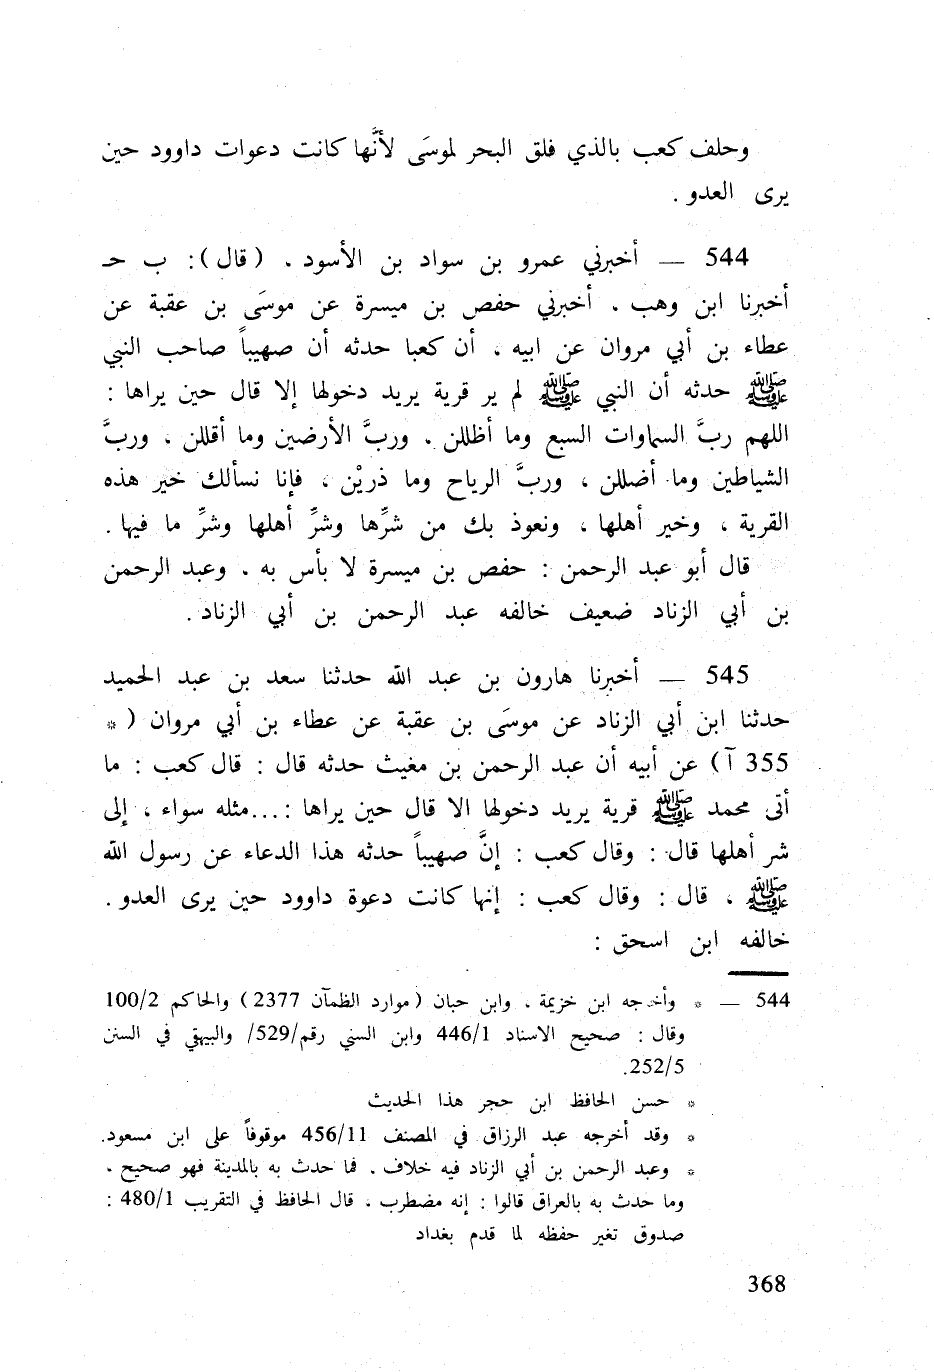 وحلف كعب بالذي فلق البحر لموسَى لأنَّها كانت دعوات داوود حين
يرى العدو .
544 — أخبرني عمرو بن سواد بن الأسود . ( قال ) : ب حـ
أخبرنا ابن وهب . أخبرني حفص بن ميسرة عن موسَى بن عقبة عن
عطاء بن أبي مروان عن ابيه . أن كعبا حدثه أن صهيباً صاحب النبي
ﷺ حدثه أن النبي ﷺ لم ير قرية يريد دخولها إلا قال حين يراها :
اللهم ربَّ السماوات السبع وما أظللن . وربَّ الأرضين وما أقللن ، وربَّ
الشياطين وما أضللن ، وربَّ الرياح وما ذريْن ، فإنا نسألك خير هذه
القرية ، وخير أهلها ، ونعوذ بك من شرِّها وشرِّ أهلها وشرِّ ما فيها .
قال أبو عبد الرحمن : حفص بن ميسرة لا بأس به . وعبد الرحمن
بن أبي الزناد ضعيف خالفه عبد الرحمن بن أبي الزناد .
545 — أخبرنا هارون بن عبد الله حدثنا سعد بن عبد الحميد
حدثنا ابن أبي الزناد عن موسَى بن عقبة عن عطاء بن أبي مروان ( *
355 آ ) عن أبيه أن عبد الرحمن بن مغيث حدثه قال : قال كعب : ما
أتى محمد ﷺ قرية يريد دخولها الا قال حين يراها : ... مثله سواء ، إلى
شر أهلها قال : وقال كعب : إنَّ صهيباً حدثه هذا الدعاء عن رسول الله
ﷺ ، قال : وقال كعب : إنها كانت دعوة داوود حين يرى العدو .
خالفه ابن اسحق :
544 — * وأخرجه ابن خزيمة . وابن حبان ( موارد الظمآن 2377 ) والحاكم 100/2
وقال : صحيح الاسناد 446/1 وابن السني رقم/529/ والبيهقي في السنن
252/5.
* حسن الحافظ ابن حجر هذا الحديث
* وقد أخرجه عبد الرزاق في المصنف 456/11 موقوفاً على ابن مسعود.
* وعبد الرحمن بن أبي الزناد فيه خلاف . فما حدث به بالمدينة فهو صحيح .
وما حدث به بالعراق قالوا : إنه مضطرب . قال الحافظ في التقريب 480/1 :
صدوق تغير حفظه لما قدم بغداد
368